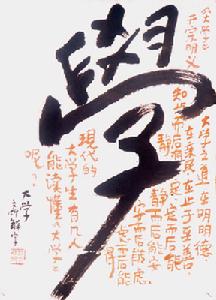 學
开宗明义
大学之道在明明德
在亲民在止于至善
知止而后有定定而后能
静静而后能安
安而后能虑
现代的
大学生有几人
能读懂《大学》
呢?